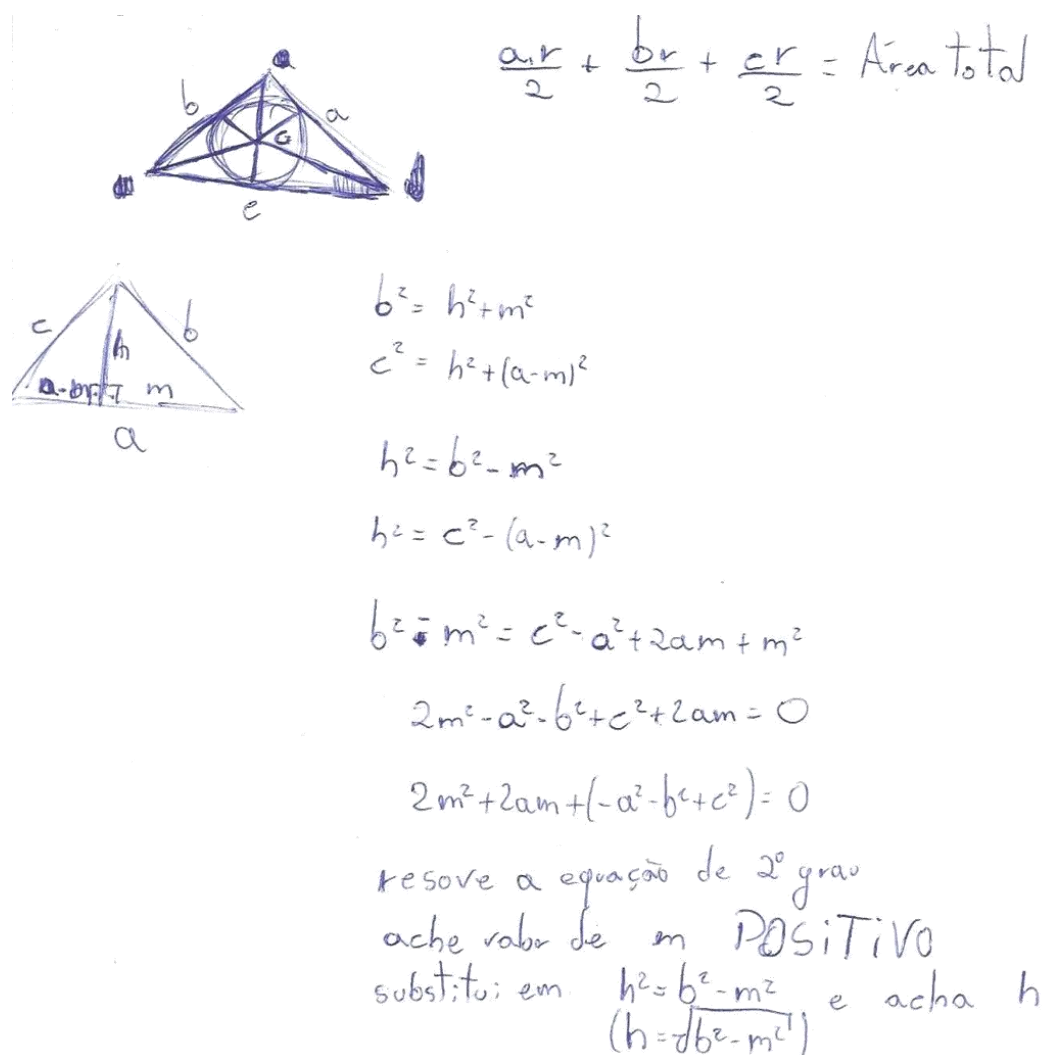 a.r/2 + br/2 + cr/2 = Área total
b a
c
c b
h
a-m m
a
b² = h²+m²
c² = h²+(a-m)²
h² = b²-m²
h² = c²-(a-m)²
b²-m² = c²-a²+2am+m²
2m²-a²-b²+c²+2am = 0
2m²+2am+(-a²-b²+c²) = 0
resove a equação de 2º grau
ache valor de m POSiTiVO
substitui em h²=b²-m² e acha h
(h=√b²-m²)